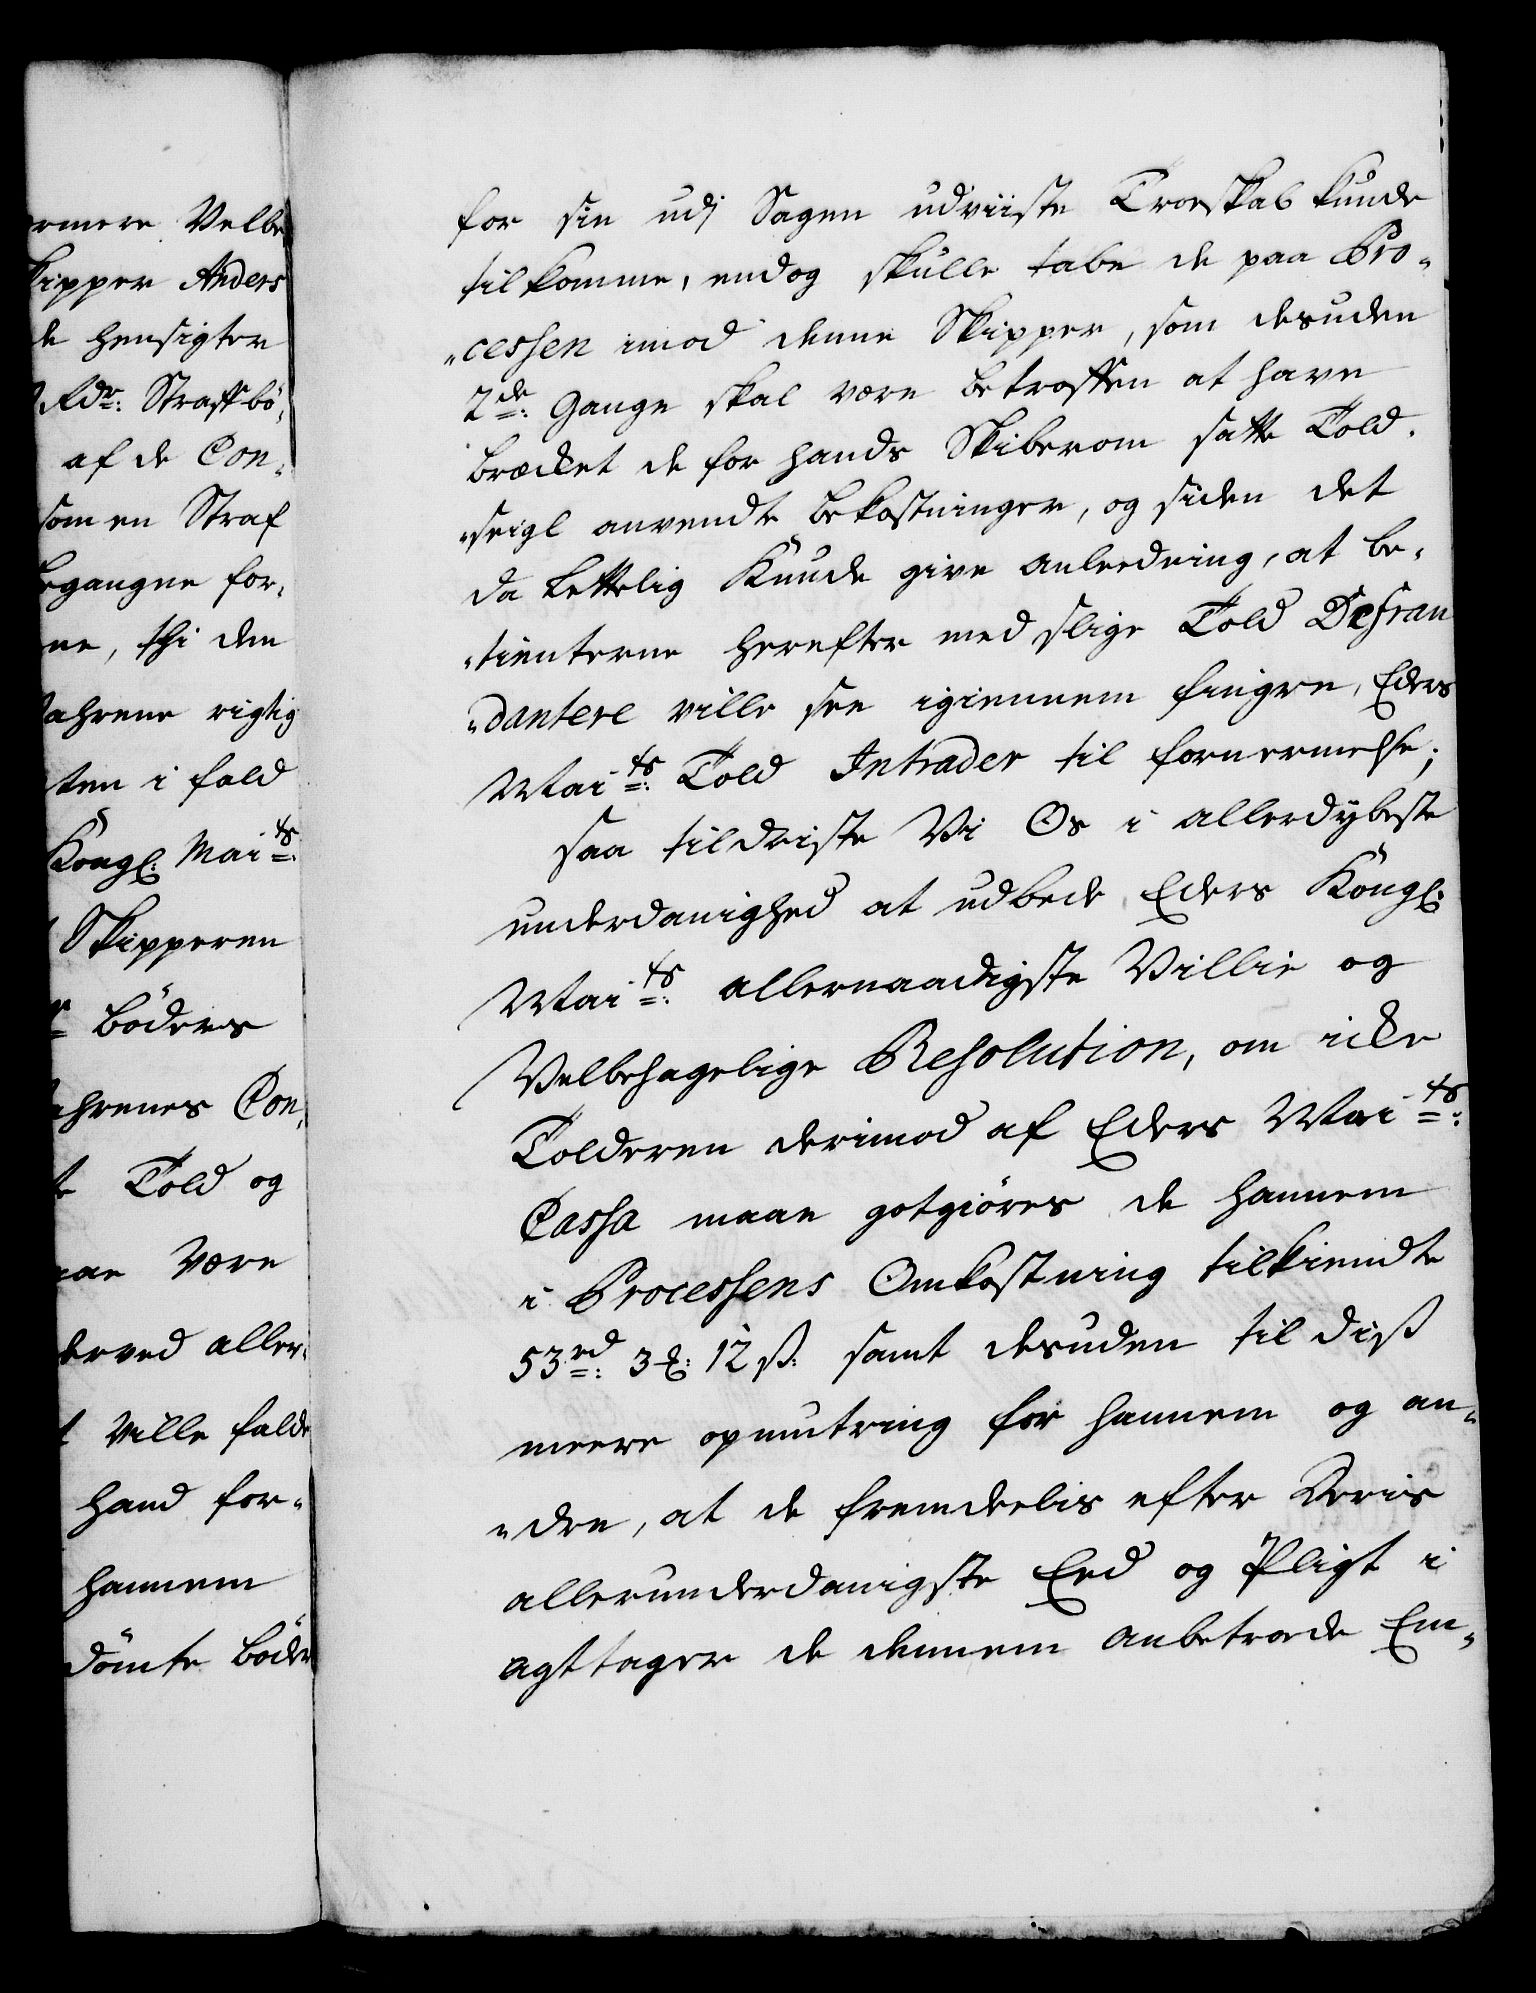 ermere Velbe
kipper Anders
de hensigter
Rdr: Straffbö-
af de Con-
som en Straf
begangne for-
ne, thi den
ahrene rigtig
ten i fald
Kongl: Maits:
Skipperen
böders
ahrenes Con-
te Told og
maae være
derved aller-
t ville falde
hand for-
hannem
dömte böder
for sin udj Sagen udviiste Troeskab kunde
tilkomme, endog skulle tabe de paa Pro-
"cessen imod denne Skipper, som desuden
2de: Gange skal være betroffen at have
brækket de for hands Skiberom satte Told-
"seigl anvendte bekostninger, og siden det
da lettelig kunde give anleedning, at be-
"tienterne herefter med slige Told Defrau
"dantere ville see igiennem fingre, Eders
Maits: Told Intrader til fornermelse;
saa tildriste Vi Os i allerdybeste
underdanighed at udbede Eders Kongl:
Maits: allernaadigste Villie og
Velbehagelige Resolution, om icke
Tolderen derimod af Eders Maits:
Cassa maae gotgiöres de hannem
i Processens Omkostning tilkiendte
53rd: 3 ℳ: 12 ß: samt desuden til diß
meere opmuntring for hannem og an-
"dre, at de fremdeelis efter Deris
allerunderdanigste Eed og Pligt i
agttager de dennem anbetroede Em-